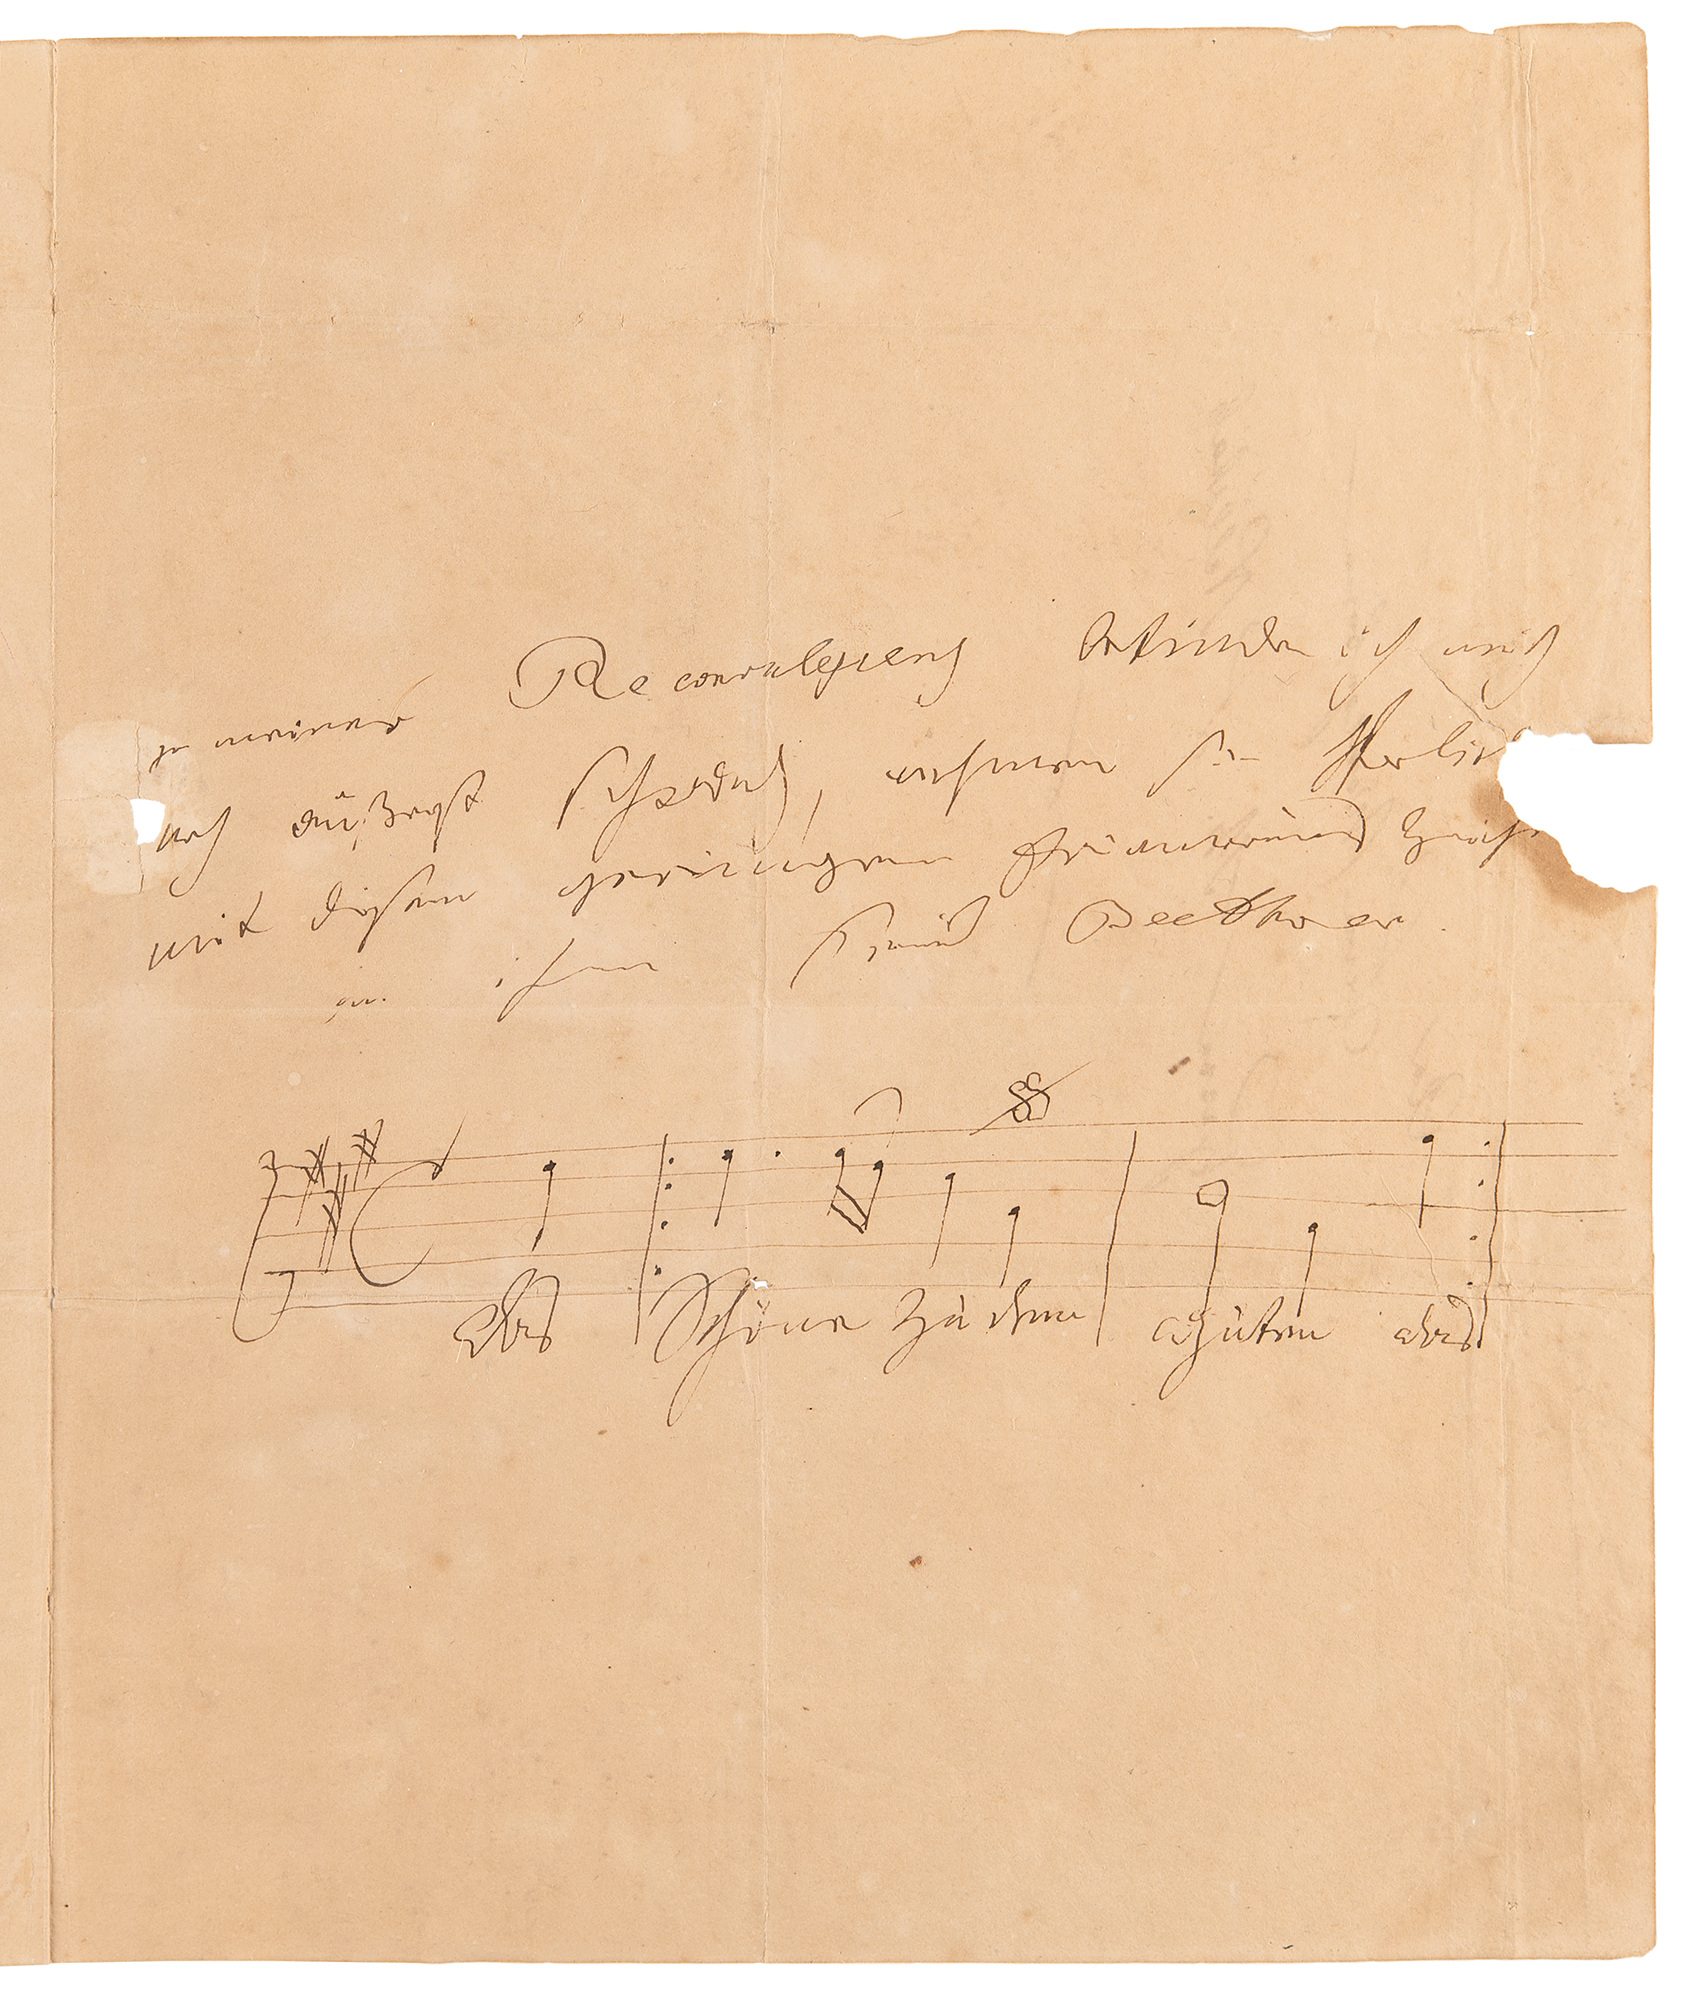 in meiner Reconvaleszenz befinde ich mich
noch äußerst schwach, nehmen sie Vorlieb
mit diesem geringen Erinnerungs Zeichen
an ihren Freund Beethoven
Das Schöne zu dem guten das